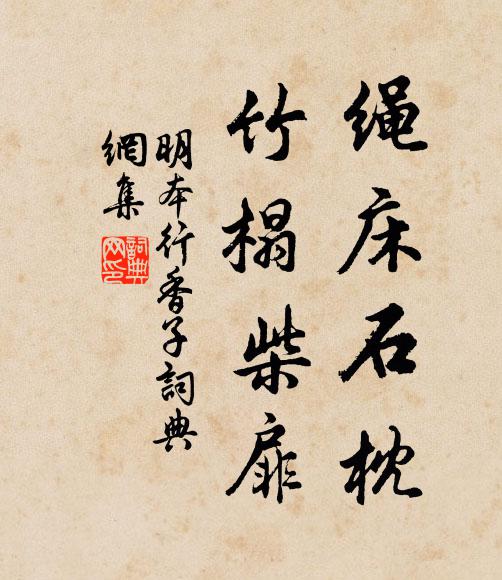 绳床石枕
竹榻柴扉
明本行香子詞典
網集
詞典
网印